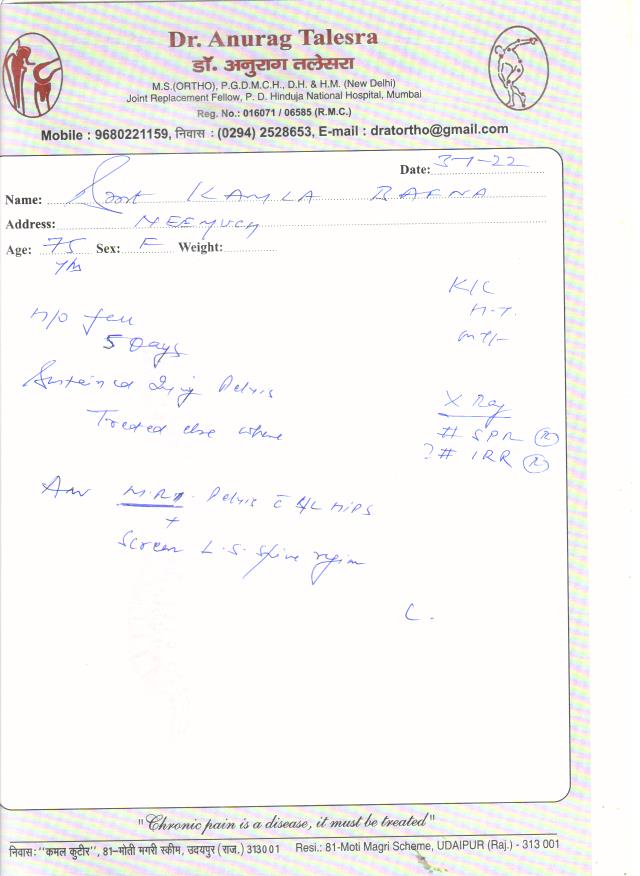 Dr. Anurag Talesra
डॉ. अनुराग तलेसरा
M.S.(ORTHO), P.G.D.M.C.H., D.H. & H.M. (New Delhi)
Joint Replacement Fellow, P. D. Hinduja National Hospital, Mumbai
Reg. No.: 016071 / 06585 (R.M.C.)
Mobile : 9680221159, निवास : (0294) 2528653, E-mail : dratortho@gmail.com
Date: 3-1-22
Name: KAMLA BAFNA
Address: NEEMUCH
Age: 75 yrs Sex: F Weight:
K/C
H.T.
H/O fall
5 Days
Sustained Injury Pelvis
Treated else where
X Ray
# SPR (R)
? # IRR (R)
Adv M.R.I. Pelvis c̄ B/L HIPS
+
Screen L.S. Spine region
"Chronic pain is a disease, it must be treated"
निवास : "कमल कुटीर", 81–मोती मगरी स्कीम, उदयपुर (राज.) 313001 Resi.: 81-Moti Magri Scheme, UDAIPUR (Raj.) - 313 001